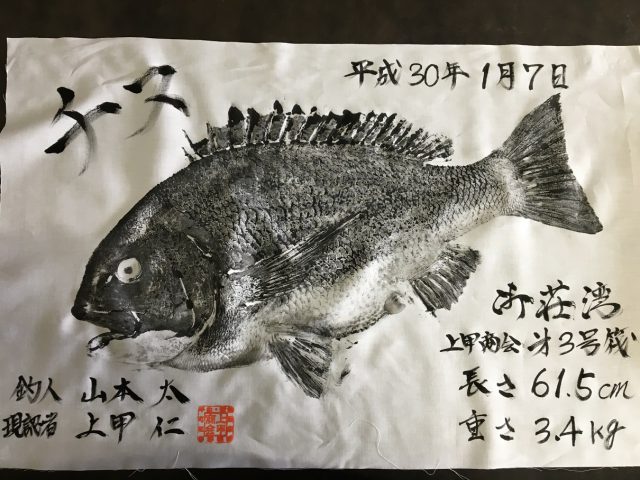 チヌ
平成30年1月7日
御荘湾
上甲商会 第3号筏
長さ 61.5cm
重さ 3.4kg
釣人 山本 太
現認者 上甲 仁